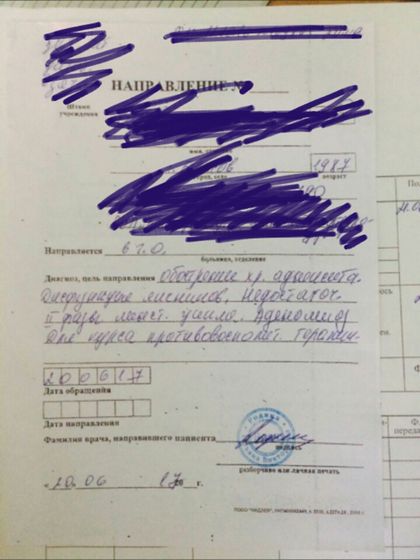 НАПРАВЛЕНИЕ №
Штамп
учреждения
1987
возраст
Направляется в г.о.
больница, отделение
Диагноз, цель направления Обострение хр. аднексита.
Дисфункция яичников. Недостаточ.
II фазы менст. цикла. Аденомиоз
Для курса противовоспалит. терапии.
200617
Дата обращения
Дата направления
Фамилия врача, направившего пациента
подпись
разборчиво или личная печать
20. 06 17 г.